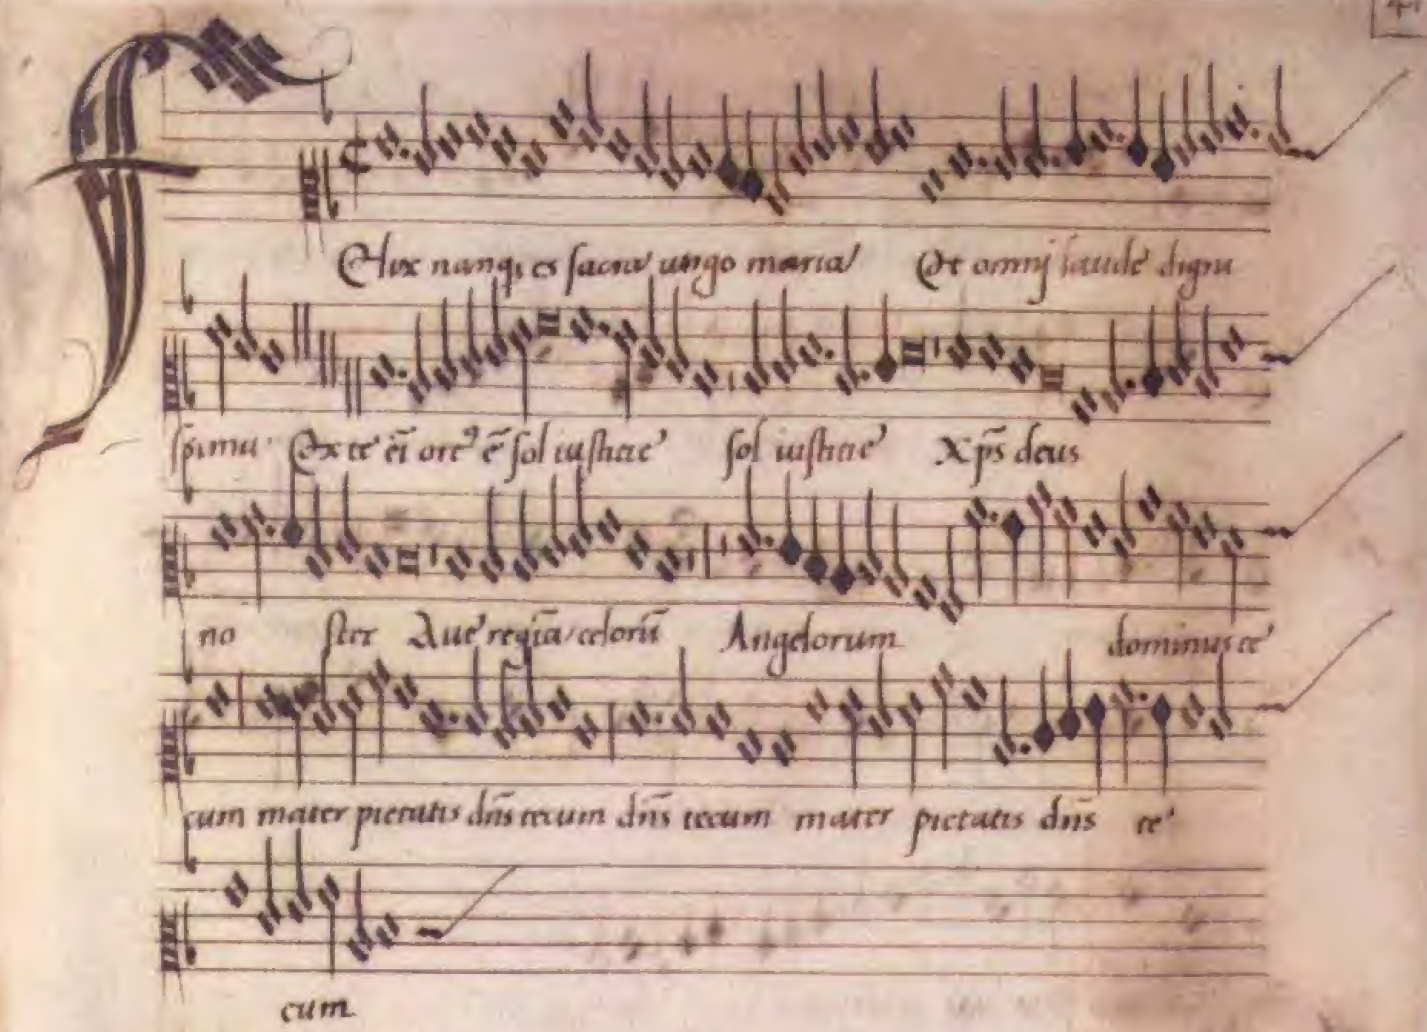 Felix nanq; es sacra virgo maria Et omnj laude digni
ssima Ex te ei ort⁹ ē sol iustitie sol iustitie Xp̄s deus
no ster Aue regīa celorū Angelorum dominus te
cum mater pietatis dn̄s tecum dn̄s tecum mater pietatis dn̄s te
cum